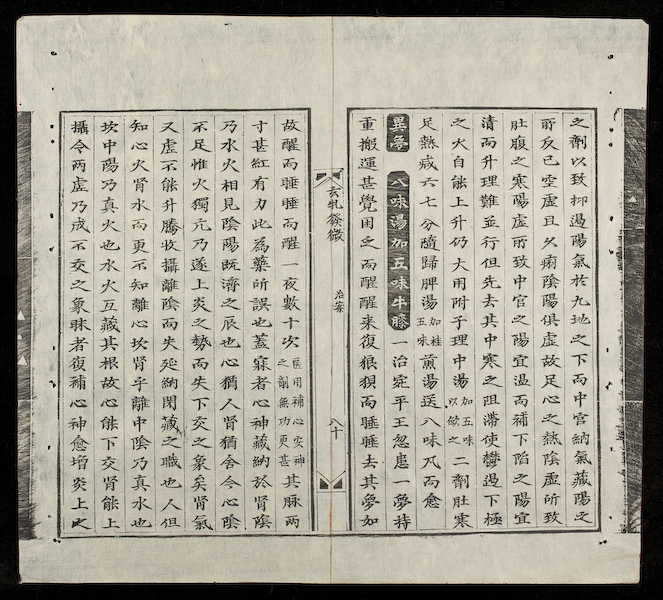 之劑以致抑遏陽氣於九地之下而中宮納氣藏陽之
所反已空虛且久痢陰陽俱虛故足心之熱陰虛所致
肚腹之寒陽虛所致中宮之陽宜溫而補下陷之陽宜
清而升理難並行但先去其中寒之阻滯使鬱遏下極
之火自能上升仍大用附子理中湯加五味以斂之二劑肚寒
足熱咸六七分隨歸脾湯加桂五味煎湯送八味丸而愈
異夢 八味湯加五味牛膝 一治定平王忽患一夢持
重搬運甚覺困乏而醒醒來復狼狽而睡睡去其夢如
玄牝發微 治案 八十
故醒而睡睡而醒一夜數十次醫用補心安神之劑無功更甚其脈兩
寸甚紅有力此為藥所誤也蓋寐者心神藏納於腎陰
乃水火相見陰陽既濟之辰也心猶人腎猶舍今心陰
不足惟火獨亢乃遂上炎之勢而失下交之象矣腎氣
又虛不能升騰收攝離陰而失延納閉藏之職也人但
知心火腎水而更不知離心坎腎乎離中陰乃真水也
坎中陽乃真火也水火互藏其根故心能下交腎能上
攝今兩虛乃成不交之象昧者復補心神愈增炎上之